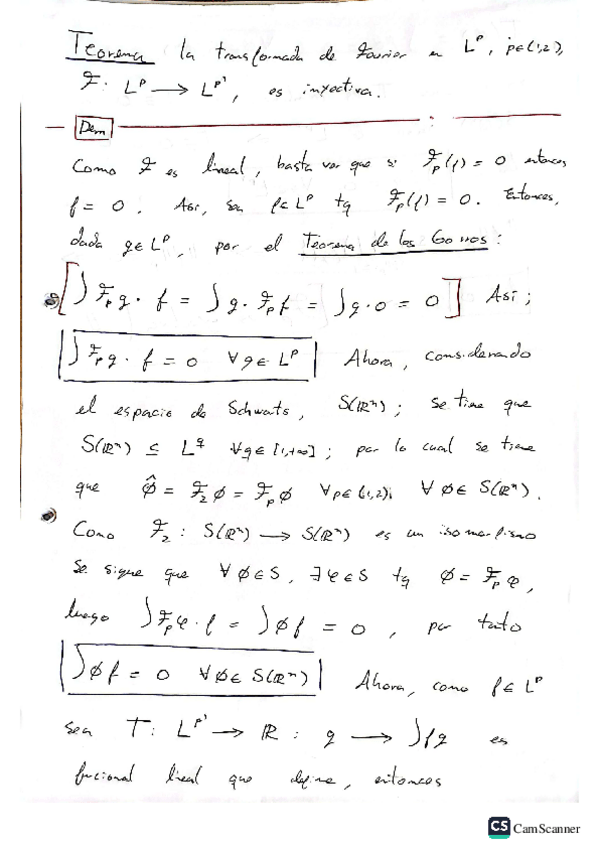 Teorema la transformada de Fourier en L^p, p∈(1,2),
F: L^p → L^p', es inyectiva.
Dem
Como F es lineal, basta ver que si F_p(f) = 0 entonces
f = 0. Así, sea f∈L^p tq F_p(f) = 0. Entonces,
dada g∈L^p, por el Teorema de los Gorros:
[∫F_p g · f = ∫g · F_p f = ∫g · 0 = 0] Así;
∫F_p g · f = 0 ∀g∈L^p Ahora, considerando
el espacio de Schwats, S(ℝ^n); se tiene que
S(ℝ^n) ⊆ L^q ∀q∈[1,+∞]; por lo cual se tiene
que φ̂ = F_2 φ = F_p φ ∀p∈(1,2); ∀φ∈S(ℝ^n).
Como F_2: S(ℝ^n) → S(ℝ^n) es un isomorfismo
se sigue que ∀φ∈S, ∃φ∈S tq φ = F_p φ,
luego ∫F_p φ · f = ∫φf = 0, por tanto
∫φf = 0 ∀φ∈S(ℝ^n) Ahora, como f∈L^p
sea T: L^p' → ℝ: g → ∫fg es
funcional lineal que define, entonces
CS CamScanner